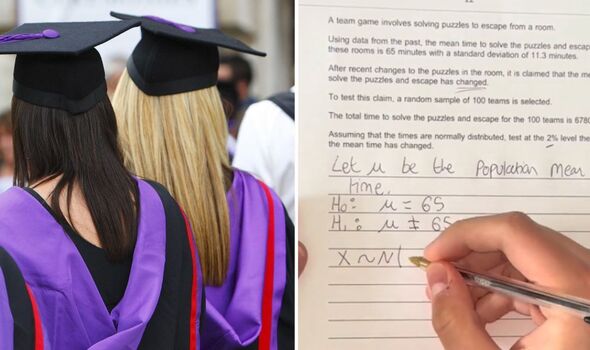 A team game involves solving puzzles to escape from a room.
Using data from the past, the mean time to solve the puzzles and escap
these rooms is 65 minutes with a standard deviation of 11.3 minutes.
After recent changes to the puzzles in the room, it is claimed that the me
solve the puzzles and escape has changed.
To test this claim, a random sample of 100 teams is selected.
The total time to solve the puzzles and escape for the 100 teams is 6780
Assuming that the times are normally distributed, test at the 2% level the
the mean time has changed.
Let μ be the Population mean
time.
H₀: μ = 65
H₁: μ ≠ 65
X ~ N(